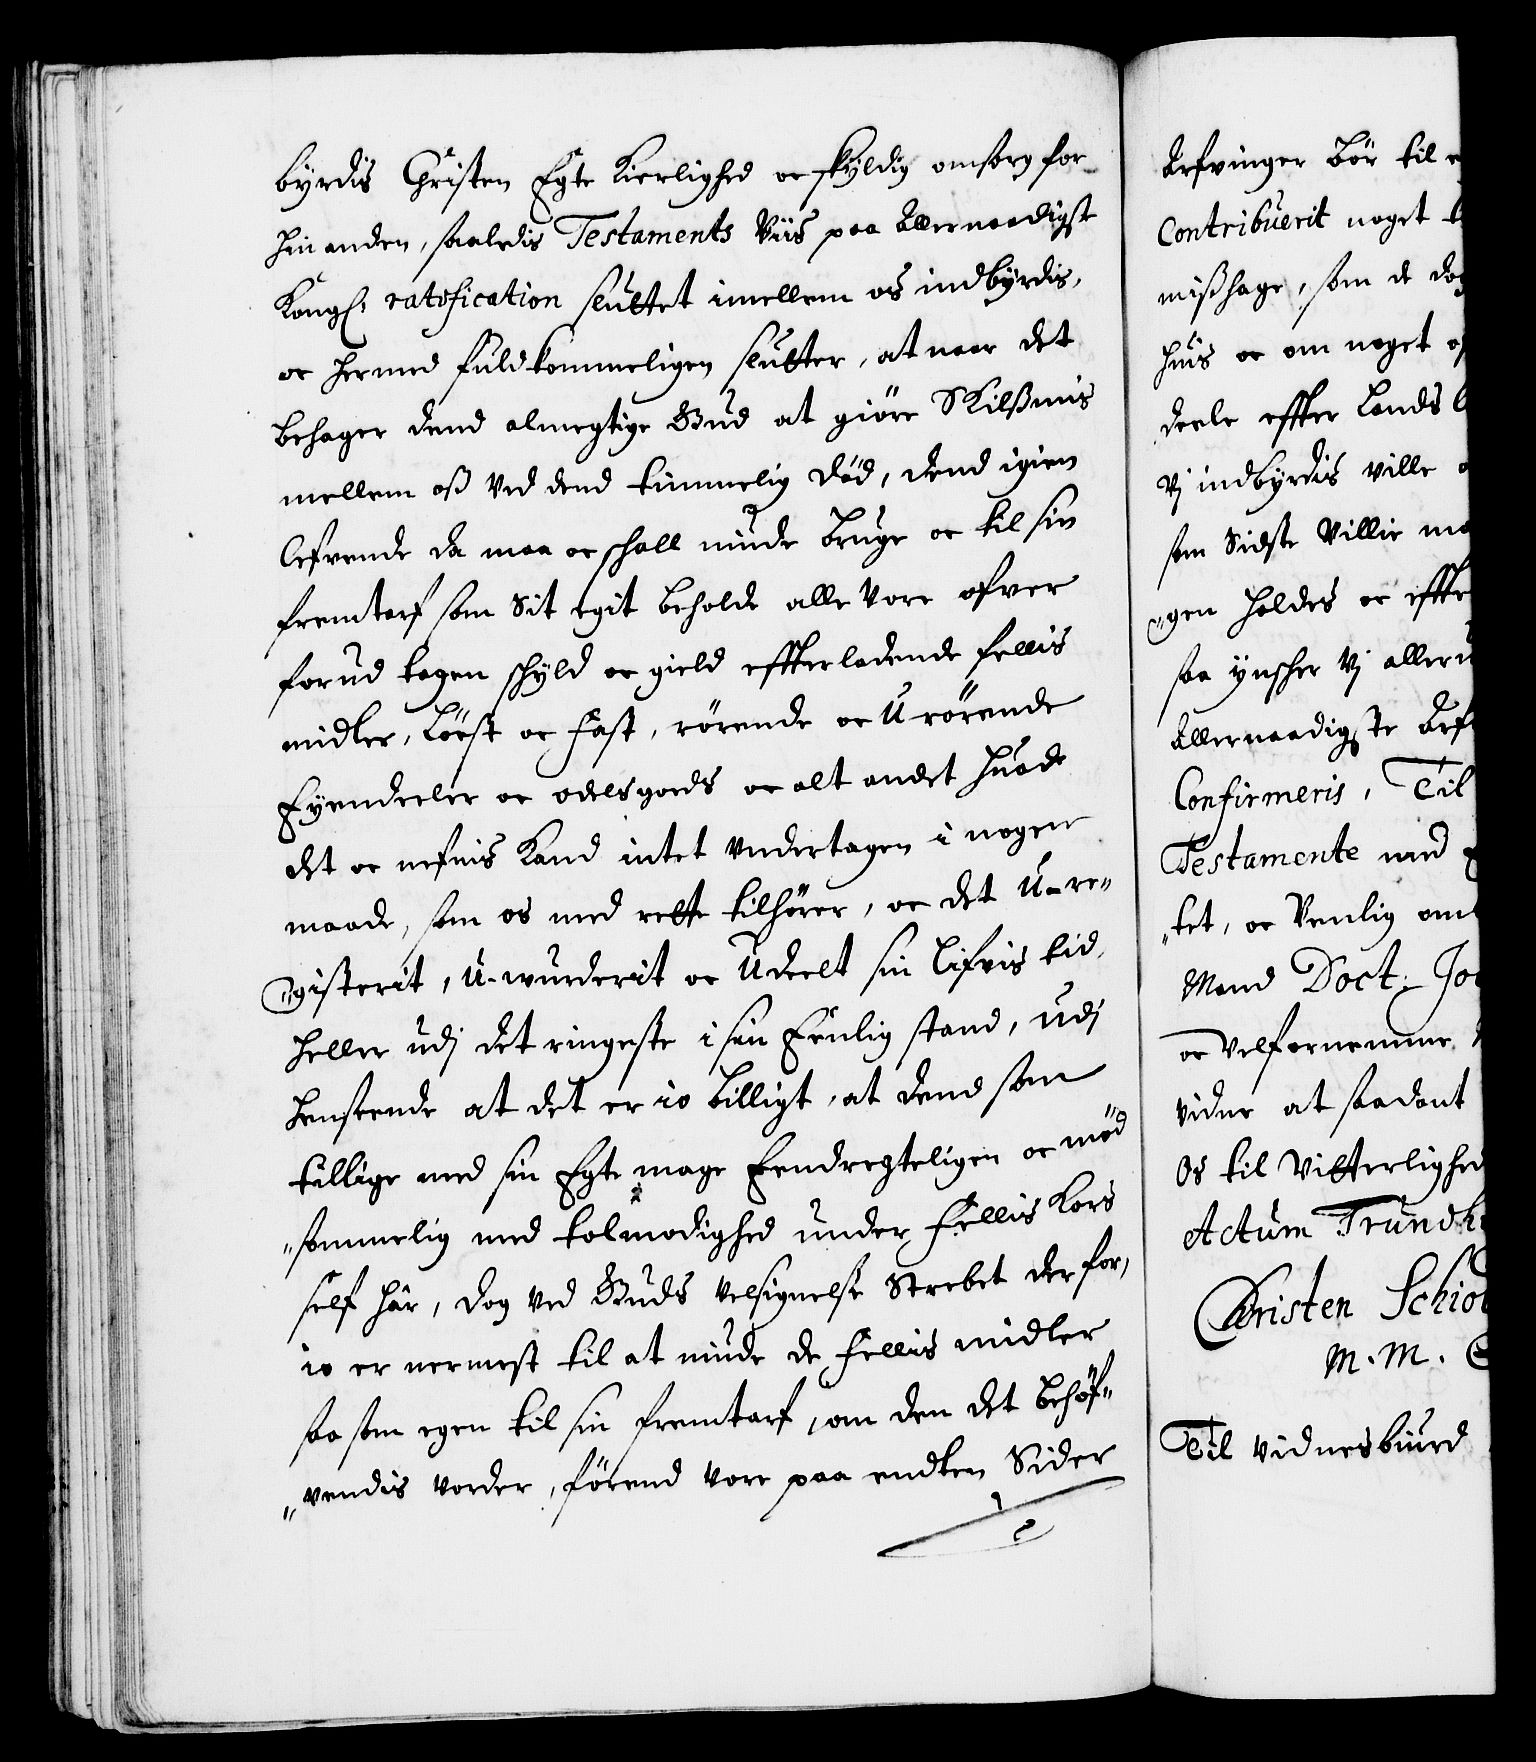 byrdis Christen Egte Kierlighed oc skyldig omsorg for
hin anden, saaledis Testaments Viis paa Allernaadigst
Kongl: ratification sluttet imellem os indbyrdis,
oc hermed fuldkommeligen slutter, at naar det
behager dend almegtige Gud at giöre Skilßmis
mellem oß ved dend timmelig död, dend igien
lefvende da maa oc schall niude bruge oc til sin
fremtarf som sit egit beholde alle vore ofver
forud tagen schyld oc gield effterladende fellis
midler, Löest oc fast, rörende oc U-rörende
Eyendeeler oc odelsgoeds oc alt andet huade
det oc nefnis kand intet undertagen i nogen
maade, som os med rette tilhörer, oc det U-re„
„gisterit, U-wurderit oc Udeelt sin lifvis tid,
heller udj det ringeste i sin Eenlig stand, udj
henseende at det er io billigt, at dend som
tillige med sin Egte mage Eendregteligen oc möd
„sommelig med tolmodighed under fellis Kors
self hår, dog ved Guds velsignelse strebet derfor,
io er nermest til at niude de fellis midler
saa som egen til sin fremtarf, om den det behöf„
„vendis vorder, förend vore paa endten Sider
Arfvinger bör til
contribuerit noget
mißhage, som de
huis oc om noget
deele effter Lands
Vj indbyrdis ville
som Sidste Villie
„gen holdes oc
saa ynscher Vj
Allernaadigste
Confirmeris, Til
Testamente med
„tet, oc Venlig
Mand Doct:
oc Velfornemme
vidne at saadant
Os til Vitterlighed
Actum
Christen
M. M.
Til vidnesbiurd